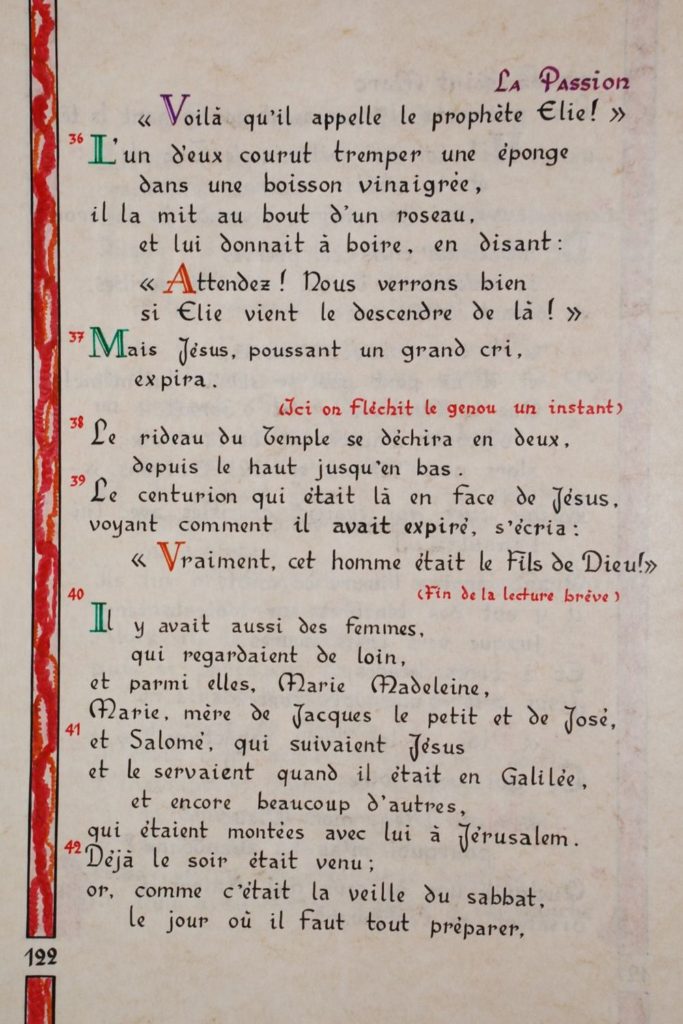 La Passion
« Voilà qu'il appelle le prophète Elie! »
36 L'un d'eux courut tremper une éponge
dans une boisson vinaigrée,
il la mit au bout d'un roseau,
et lui donnait à boire, en disant :
« Attendez ! Nous verrons bien
si Elie vient le descendre de là ! »
37 Mais Jésus, poussant un grand cri,
expira.
(Ici on fléchit le genou un instant)
38 Le rideau du Temple se déchira en deux,
depuis le haut jusqu'en bas.
39 Le centurion qui était là en face de Jésus,
voyant comment il avait expiré, s'écria :
« Vraiment, cet homme était le Fils de Dieu!»
(Fin de la lecture brève)
40 Il y avait aussi des femmes,
qui regardaient de loin,
et parmi elles, Marie Madeleine,
Marie, mère de Jacques le petit et de José,
41 et Salomé, qui suivaient Jésus
et le servaient quand il était en Galilée,
et encore beaucoup d'autres,
qui étaient montées avec lui à Jérusalem.
42 Déjà le soir était venu ;
or, comme c'était la veille du sabbat,
le jour où il faut tout préparer,
122